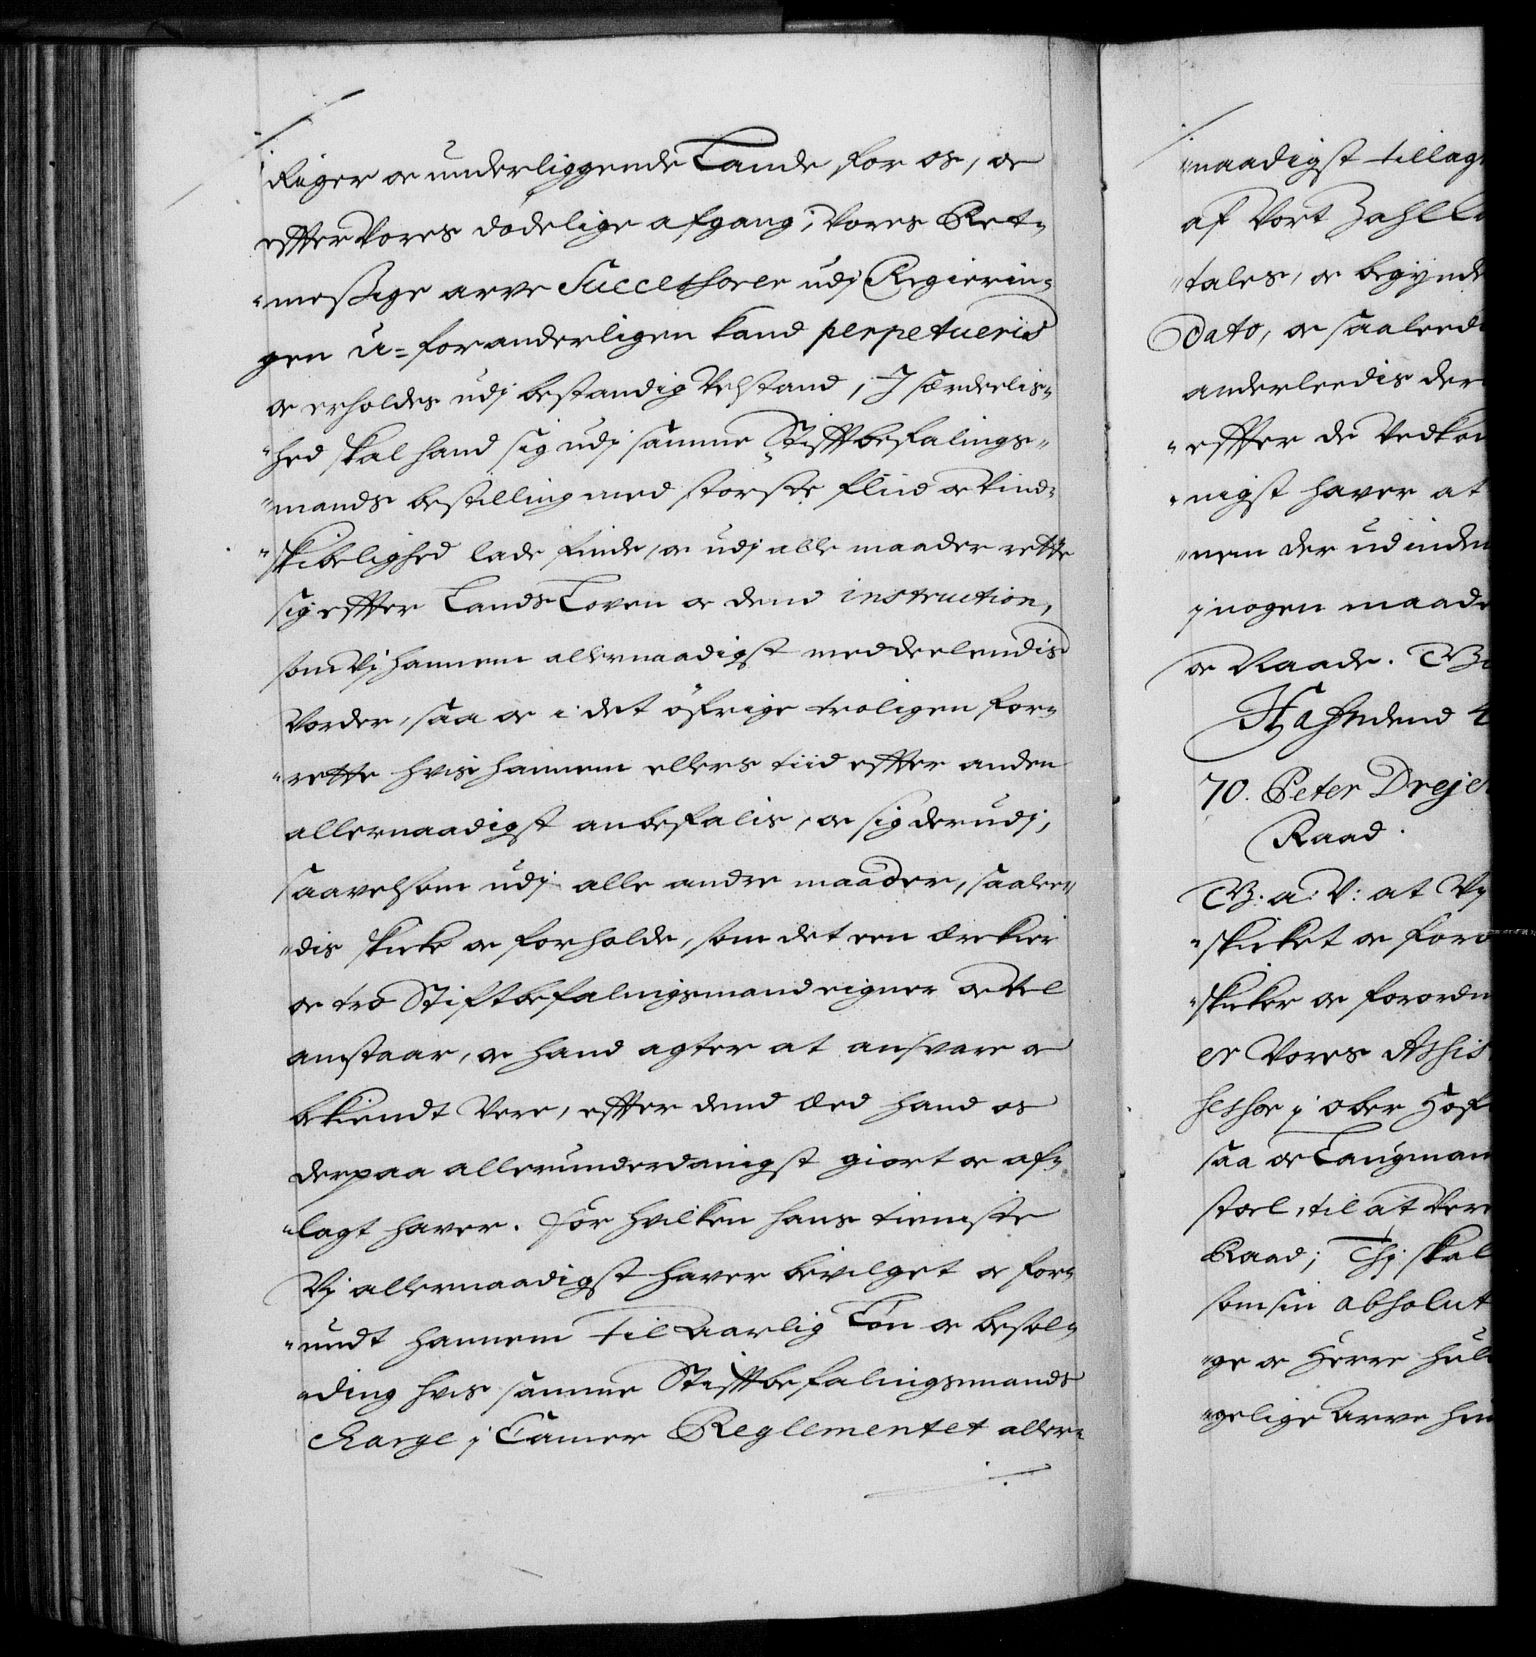 Riger oc underliggende Lande for os, oc
effter Vores dödelige afgang, Vores Ret-
messige arve Successorer udj Regierin-
gen u-foranderligen kand perpetueris
oc erholdes udj bestandig Velstand, J særdeelis-
hed skal hand sig udj samme Stifftbefalings-
mands bestilling med störste fliid oc Vind-
skibelighed lade finde, oc udj alle maader rette
sig effter Lands Loven oc dend instruction,
som Vj hannem allernaadigst meddeelendis
Vorder, saa oc i det öfrige troligen for-
rette hvis hannem ellers tiid effter anden
allernaadigst anbefalis, oc sig derudj,
saavelsom udj alle andre maader, saalee-
dis skicke oc forholde, som det een ærekier
oc tro Stiftbefalingsmand eigner oc Vel
anstaar, oc hand agter at ansvare oc
bekiendt Vere, effter dend Æed hand os
derpaa allerunderdanigst giort oc af-
lagt haver. For hvilken hans tienniste
Vj allernaadigst haver bevilget oc for-
undt hannem til Aarlig Lön oc besol-
ding hvis samme Stifftbefalingsmands
Charge j Camer Reglementet aller-
naadigst tillagt
af Vort Zahl
tales, oc begynde
Dato, oc saaleedi
anderleedis der
effter de Vedkom
nigst haver at
nem der ud inden
j nogen maade
oc Naade.
Hafn dend 4
70. Peter Drejer
Raad.
G. a. V: at Vj
skicket oc foror
skicker oc forordn
er Vores Assis
sessor j ober Hof
saa oc Laugman
stoel, til at Vere
Raad; Thj skal
som sin absolut
ge oc Herre huld
gelige Arve her